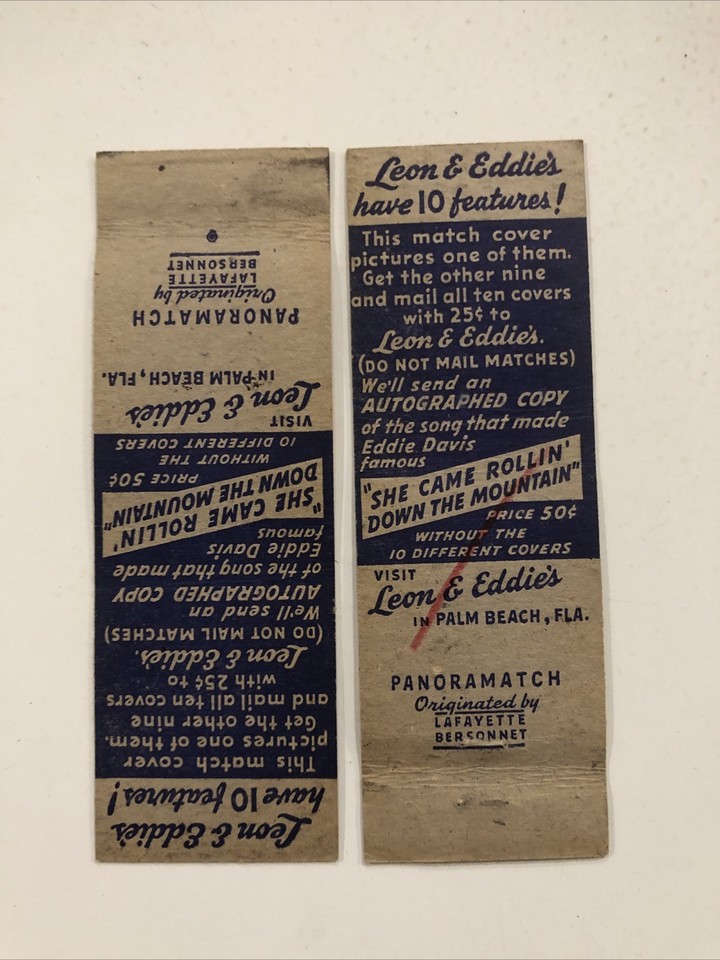 Leon & Eddie's
have 10 features!
This match cover
pictures one of them.
Get the other nine
and mail all ten covers
with 25¢ to
Leon & Eddie's.
(DO NOT MAIL MATCHES)
We'll send an
AUTOGRAPHED COPY
of the song that made
Eddie Davis
famous
"SHE CAME ROLLIN'
DOWN THE MOUNTAIN"
PRICE 50¢
WITHOUT THE
10 DIFFERENT COVERS
VISIT
Leon & Eddie's
IN PALM BEACH, FLA.
PANORAMATCH
Originated by
LAFAYETTE
BERSONNET
Leon & Eddie's
have 10 features!
This match cover
pictures one of them.
Get the other nine
and mail all ten covers
with 25¢ to
Leon & Eddie's.
(DO NOT MAIL MATCHES)
We'll send an
AUTOGRAPHED COPY
of the song that made
Eddie Davis
famous
"SHE CAME ROLLIN'
DOWN THE MOUNTAIN"
PRICE 50¢
WITHOUT THE
10 DIFFERENT COVERS
VISIT
Leon & Eddie's
IN PALM BEACH, FLA.
PANORAMATCH
Originated by
LAFAYETTE
BERSONNET